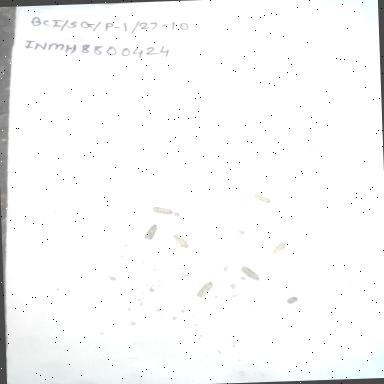 BCI/SG/P-1/27-10
INMH8500424